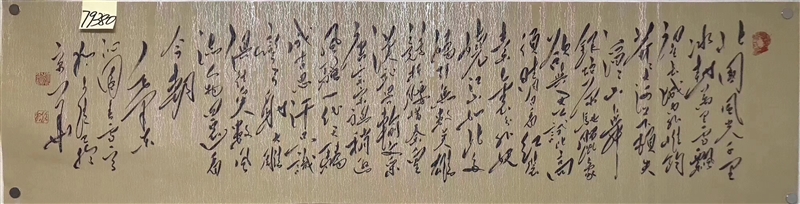 79380
北国风光千里
冰封万里雪飘
望长城内外惟余
莽莽大河上下顿失
滔滔山舞
银蛇原驰蜡象
欲与天公试比高
须晴日看红装
素裹分外妖
娆江山如此多
娇引无数英雄
竞折腰惜秦皇
汉武略输文采
唐宗宋祖稍逊
风骚一代天骄
成吉思汗只识
弯弓射大雕
俱往矣数风
流人物还看
今朝
毛泽东
沁园春雪